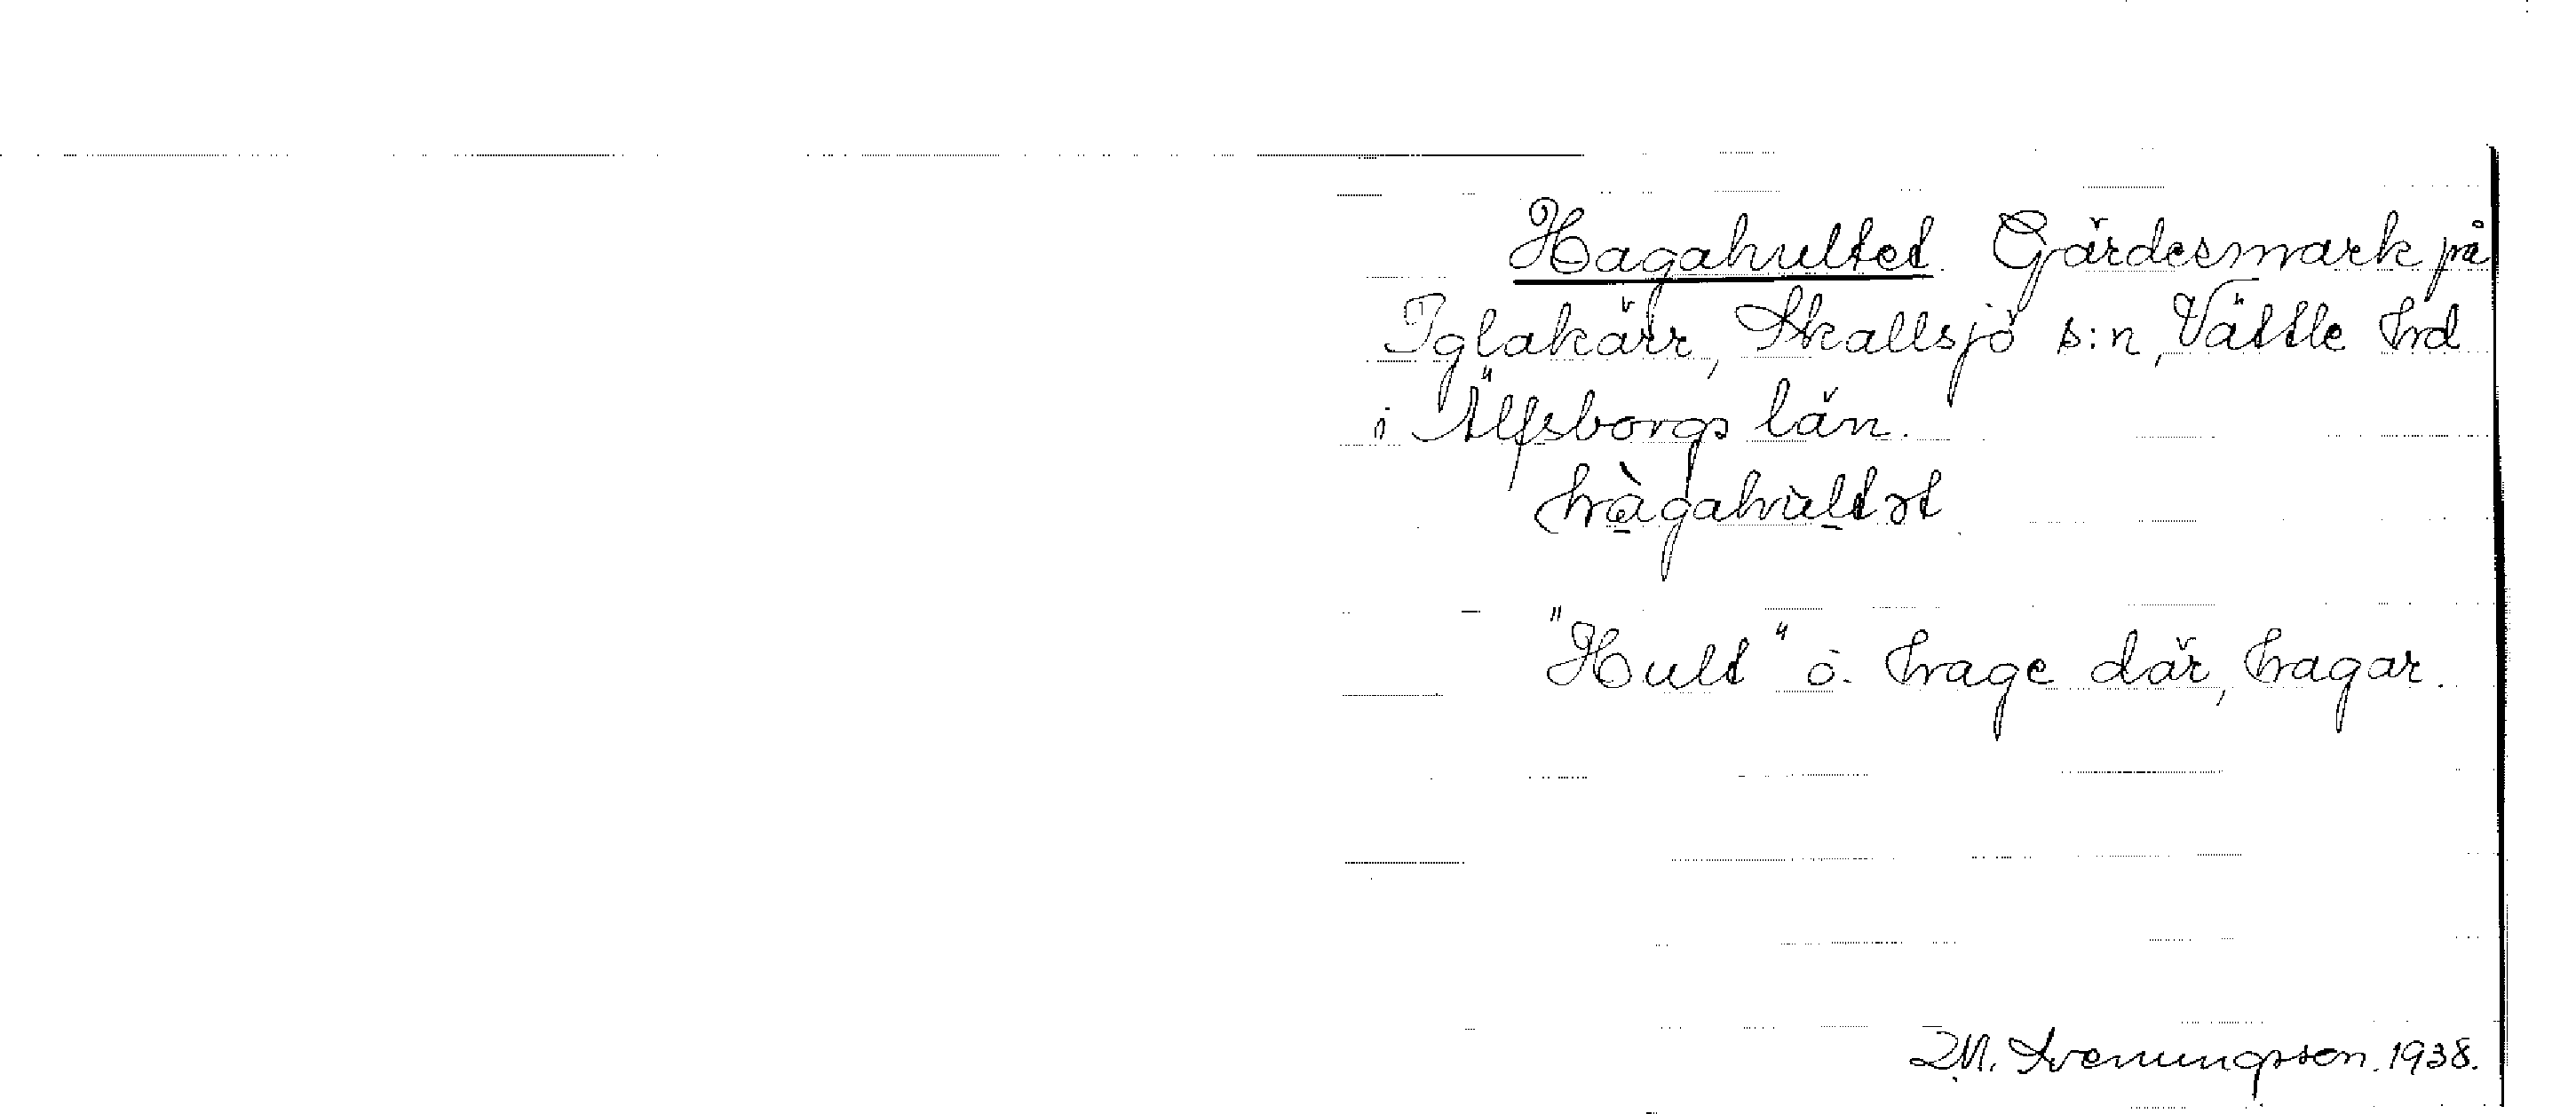 Hagahultet. Gärdesmark på
Iglakärr, Skallsjö s:n, Vättle hd
i Älfsborgs län.
hàgahùltət
"Hult" o. hage där, hagar.
M. Svenungsson. 1938.